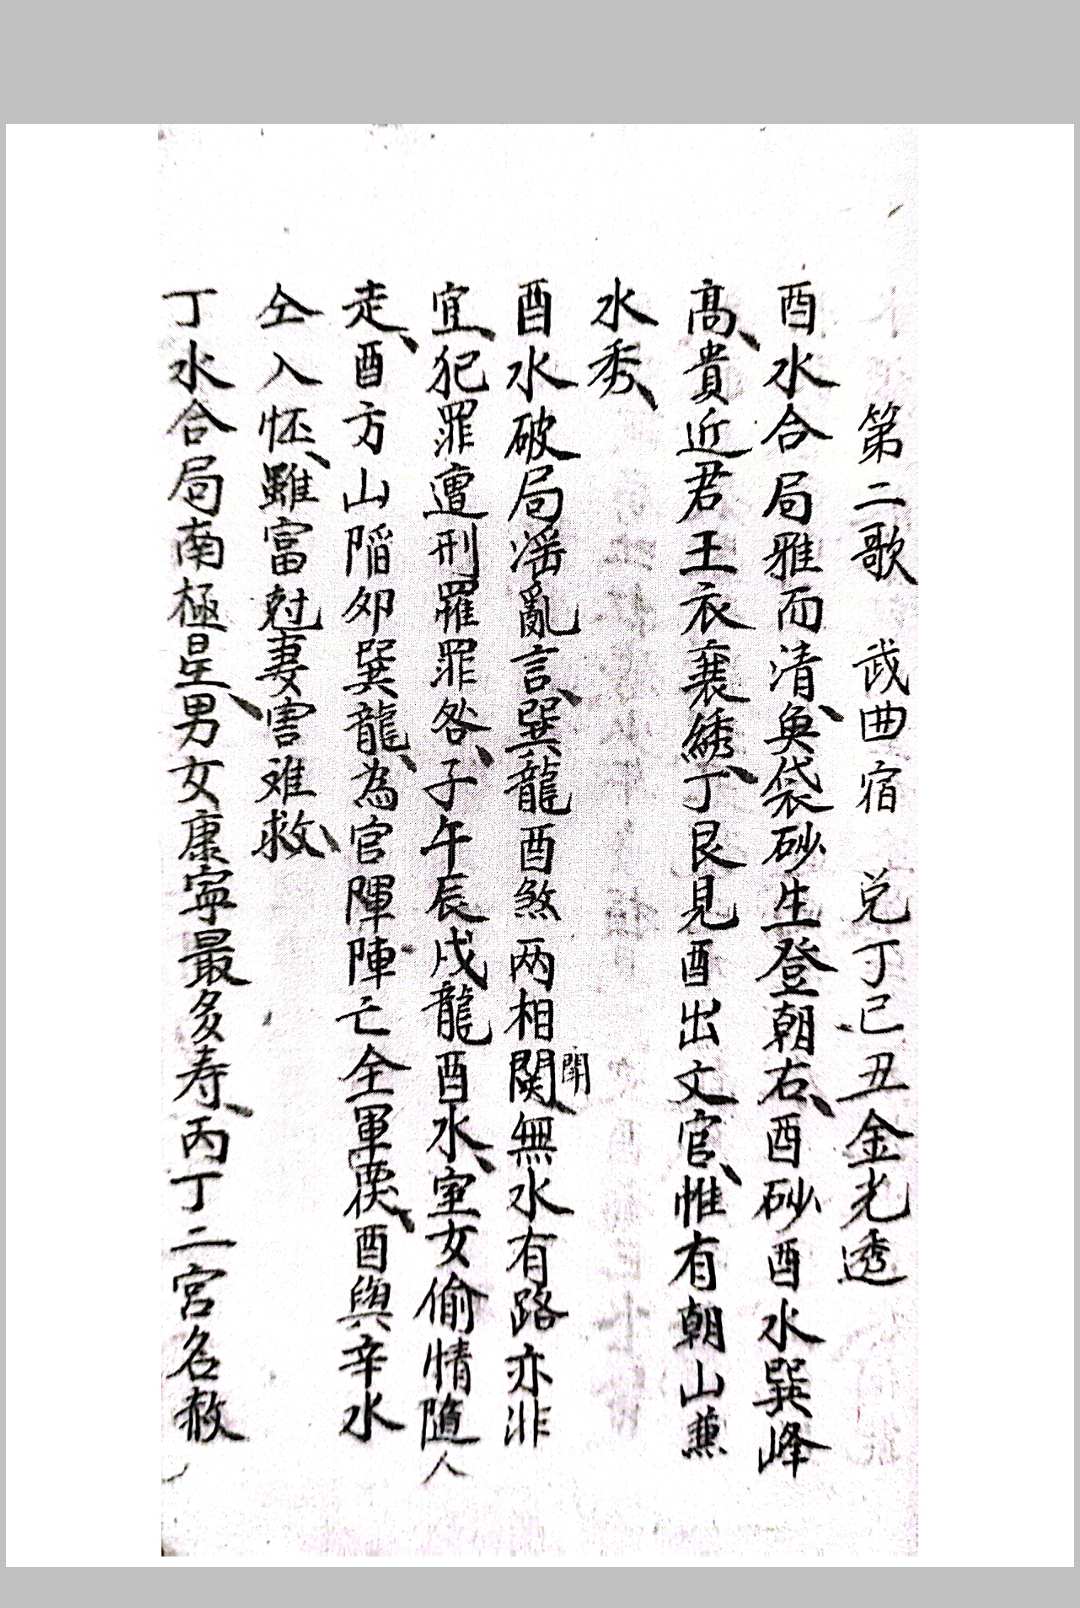 第二歌 武曲宿 兑丁巳丑金光透
酉水合局雅而清、魚袋砂生登朝右、酉砂酉水巽峰
高、貴近君王衣襄綉、丁艮見酉出文官、惟有朝山兼
水秀、
酉水破局滛亂言、巽龍酉煞两相関、閗無水有路亦非
宜、犯罪遭刑羅罪咎、子午辰戌龍酉水、室女偷情隨人
走、酉方山陷卯巽龍、為官陣亡全軍覆、酉與辛水
仝入怀、雖富尅妻害难救、
丁水合局南極星、男女康寧最多寿、丙丁二宮名赦